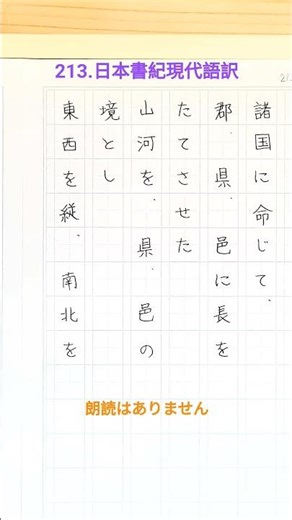 213.日本書紀現代語訳
諸国に命じて、
郡、県、邑に長を
たてさせた
山河を、県、邑の
境とし
東西を縦、南北を
朗読はありません